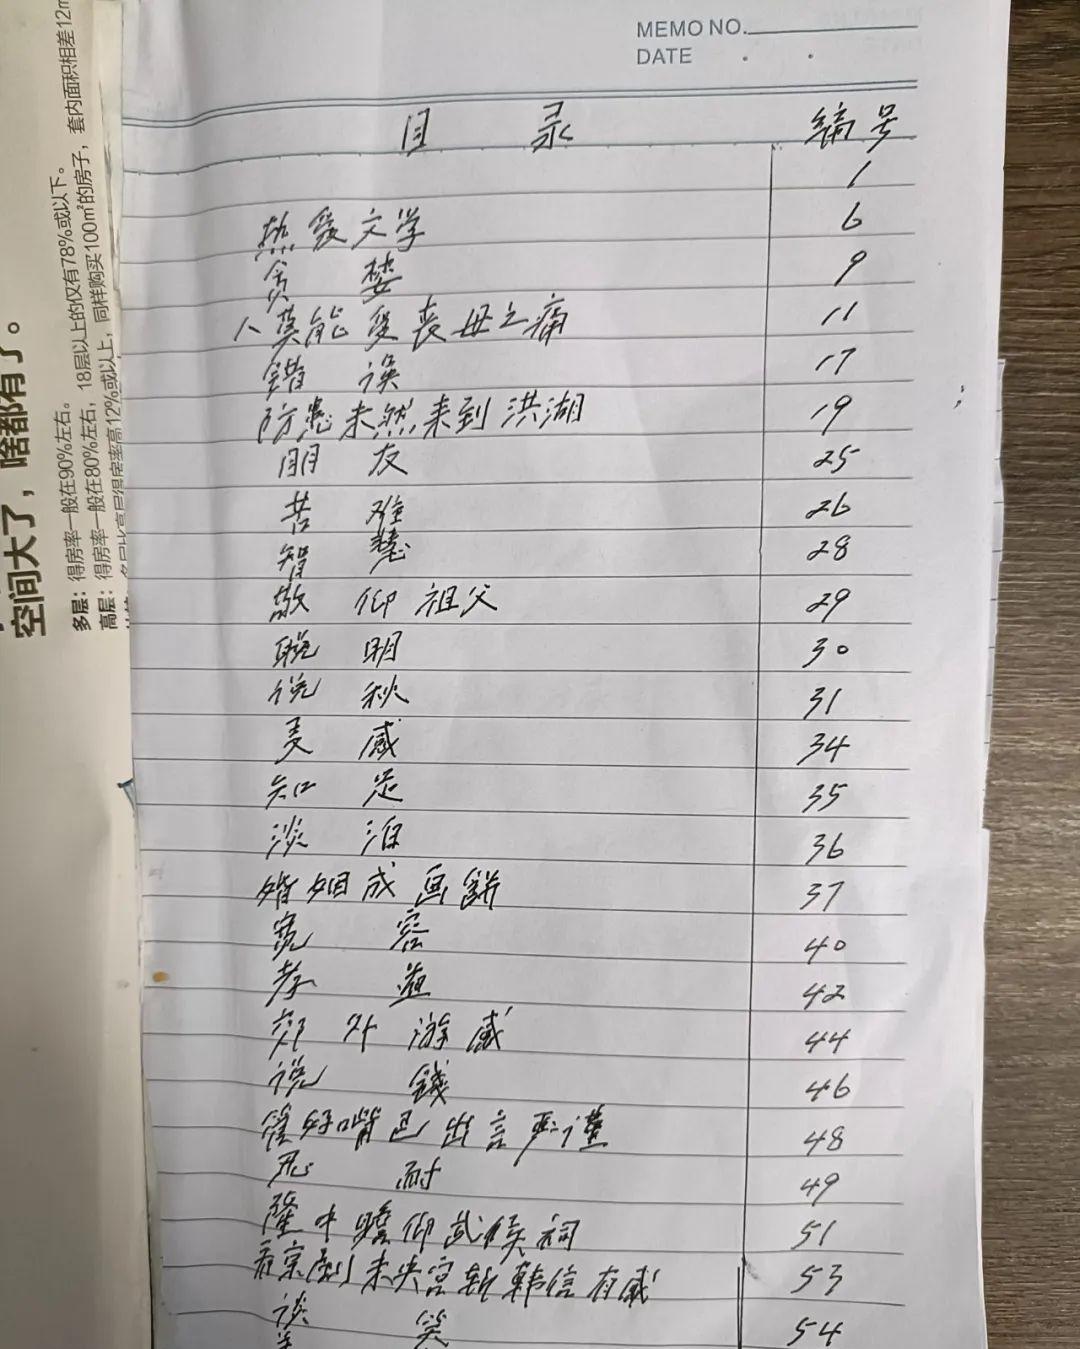 MEMO NO.
DATE
目 录 编号
1
热爱文学 6
贪婪 9
人莫能受丧母之痛 11
错误 17
防患未然来到洪湖 19
朋友 25
苦难 26
智慧 28
敬仰祖父 29
聪明 30
说秋 31
美感 34
知足 35
淡泊 36
婚姻成画餅 37
宽容 40
孝道 42
郊外游感 44
说錢 46
管好嘴巴出言严谨 48
忍耐 49
隆中瞻仰武侯祠 51
看京剧未央宫斩韩信有感 53
谈笑 54
空间大了，啥都有了。
多层：得房率一般在90%左右。
高层：得房率一般在80%左右，18层以上的仅有78%或以下。
12%或以上，同样购买100㎡的房子，套内面积相差12